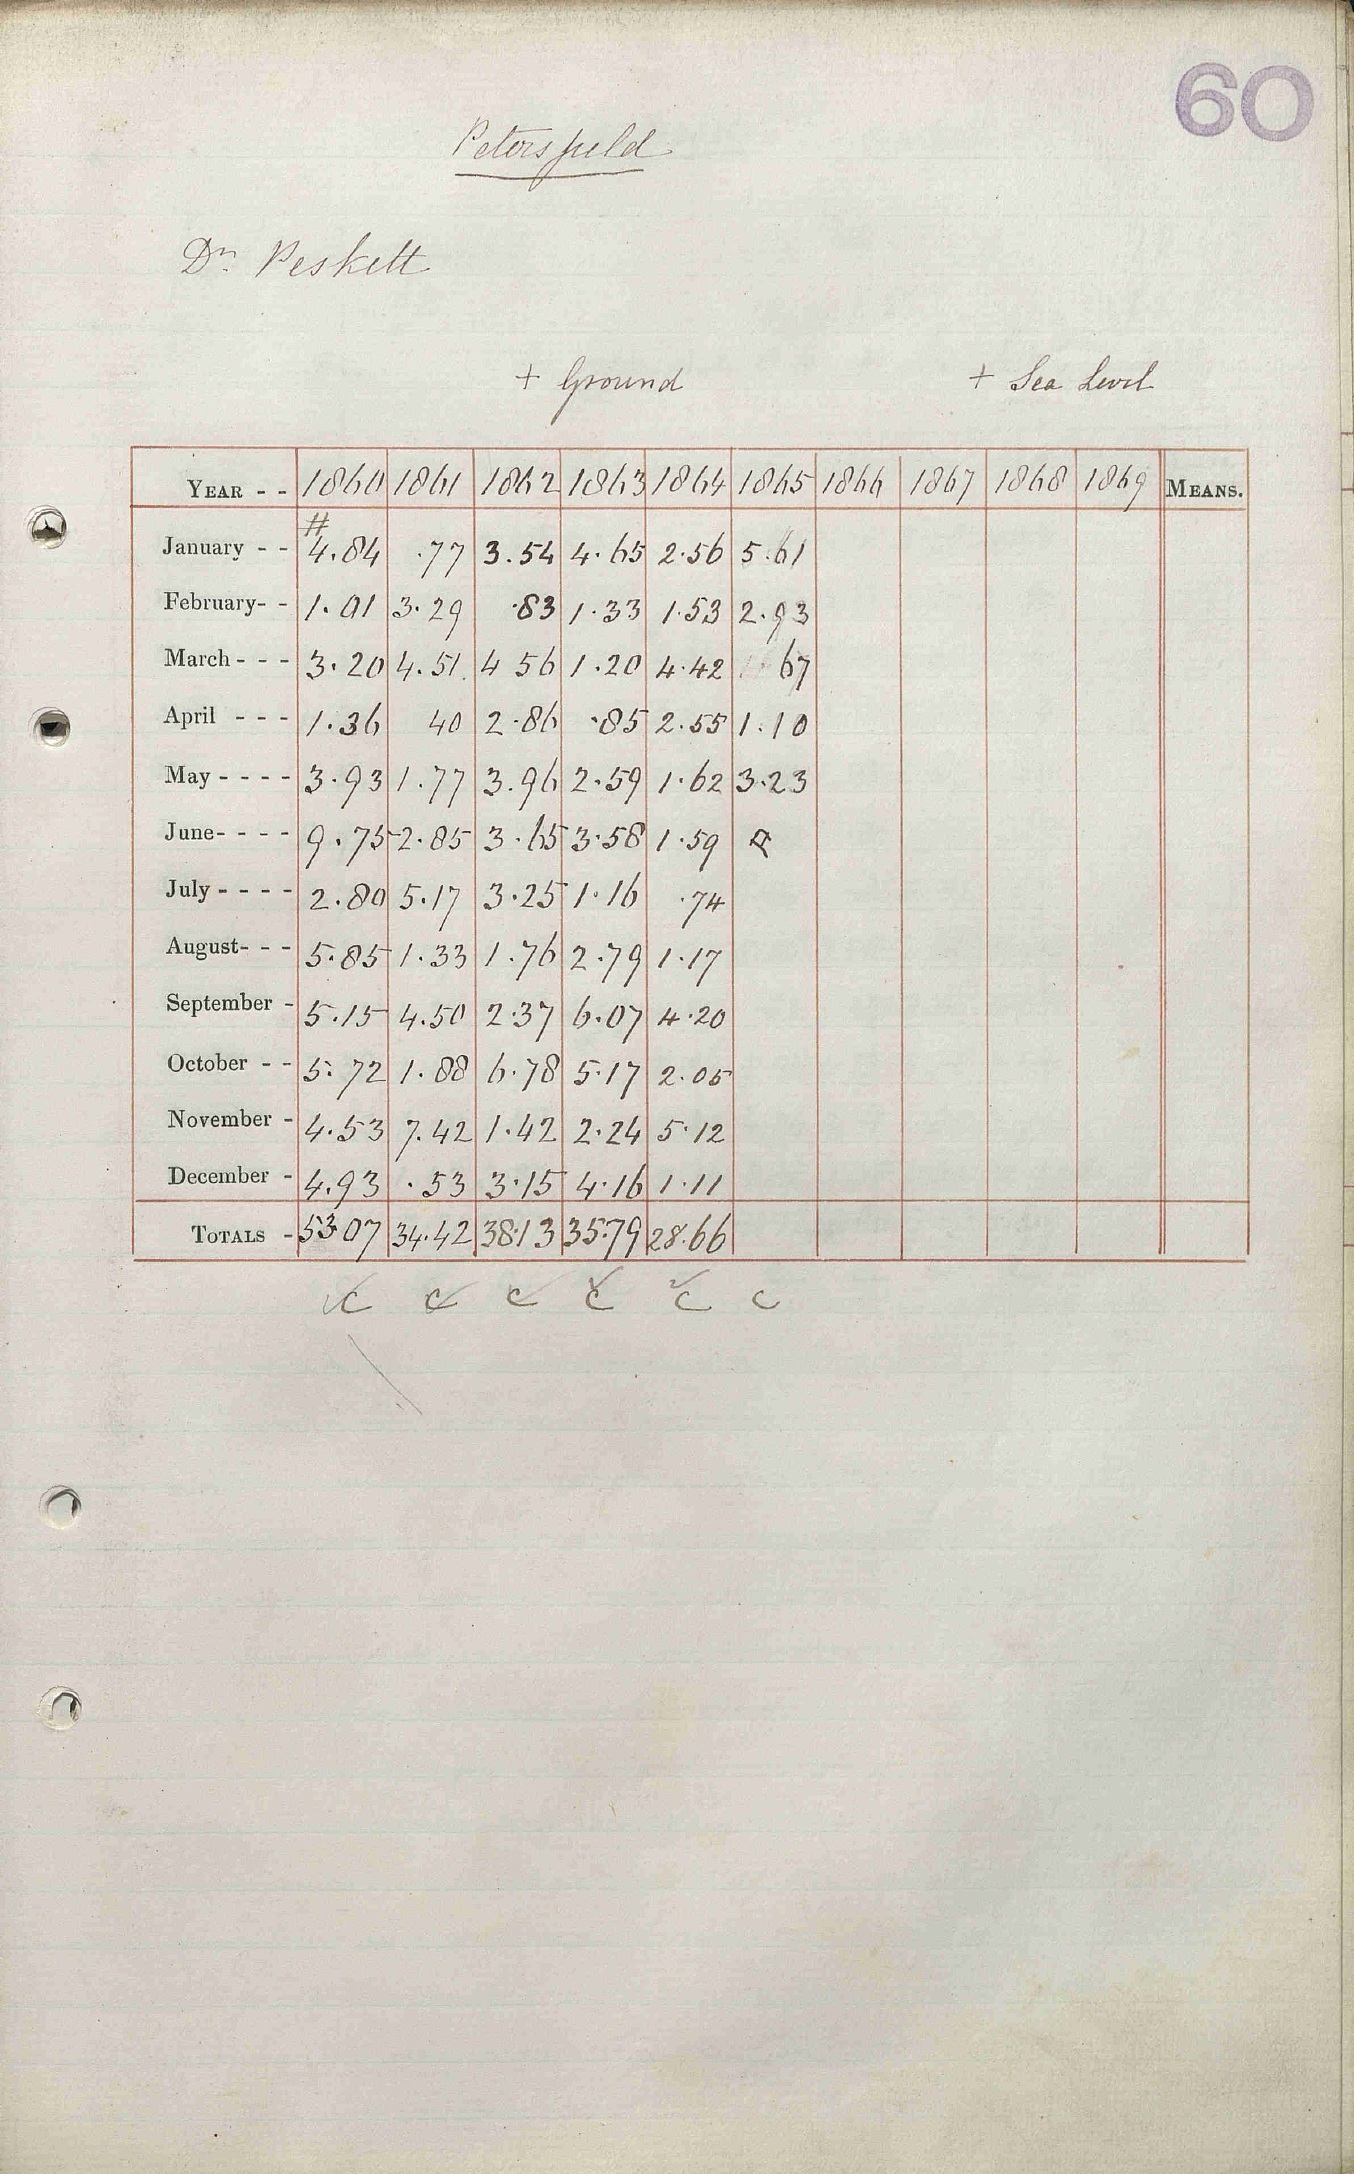 60
Petersfield
Dr. Peskett
+ Ground + Sea Level
YEAR - - 1860 1861 1862 1863 1864 1865 1866 1867 1868 1869 MEANS.
#
January - - 4.84 .77 3.54 4.65 2.56 5.61
February - - 1.01 3.29 .83 1.33 1.53 2.93
March - - - 3.20 4.51 4 56 1.20 4.42 67
April - - - 1.36 40 2.86 .85 2.55 1.10
May - - - - 3.93 1.77 3.96 2.59 1.62 3.23
June - - - - 9.75 2.85 3.65 3.58 1.59
July - - - - 2.80 5.17 3.25 1.16 .74
August - - - 5.85 1.33 1.76 2.79 1.17
September - 5.15 4.50 2.37 6.07 4.20
October - - 5.72 1.88 6.78 5.17 2.05
November - 4.53 7.42 1.42 2.24 5.12
December - 4.93 .53 3.15 4.16 1.11
TOTALS - 53.07 34.42 38.13 35.79 28.66
C C C C C C